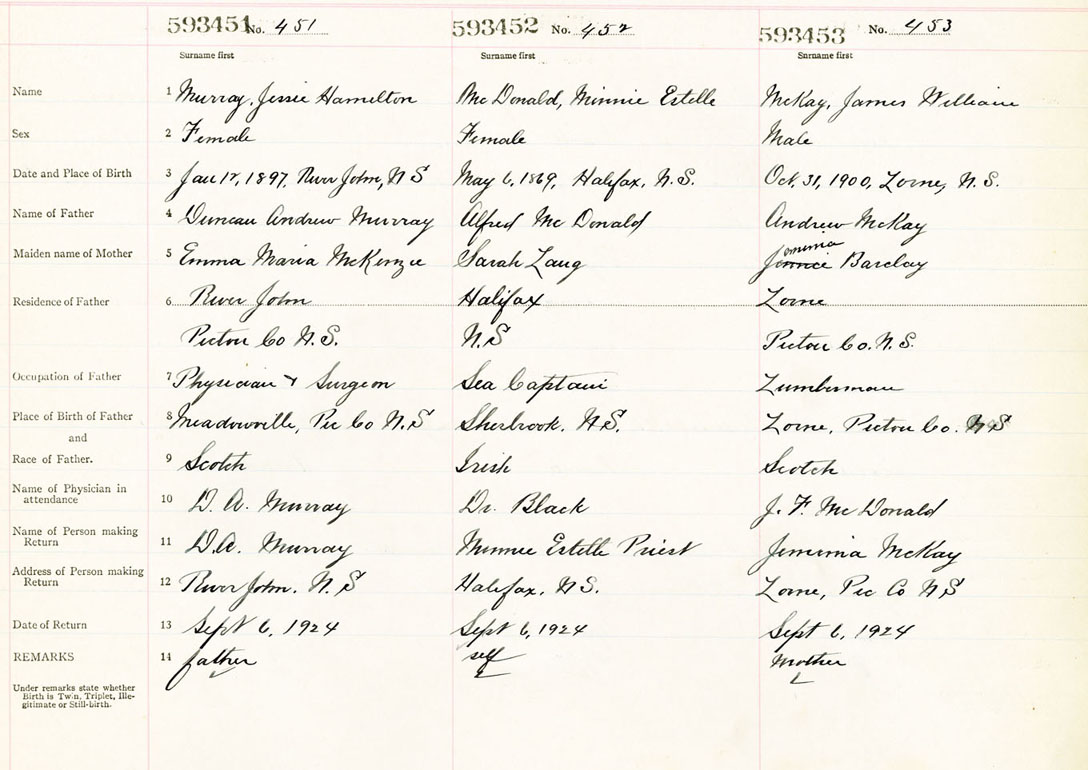 593451 No. 451 593452 No. 452 593453 No. 453
Surname first Surname first Surname first
Name 1 Murray, Jessie Hamilton Mc Donald, Minnie Estelle McKay, James William
Sex 2 Female Female Male
Date and Place of Birth 3 Jan 17, 1897, River John, N S May 6, 1869, Halifax, N.S. Oct. 31, 1900, Lorne, N.S.
Name of Father 4 Duncan Andrew Murray Alfred Mc Donald Andrew McKay
Maiden name of Mother 5 Emma Maria McKenzie Sarah Laug Jemima Barclay
Residence of Father 6 River John Halifax Lorne
Pictou Co N.S. N.S Pictou Co. N.S.
Occupation of Father 7 Physician + Surgeon Sea Captain Lumberman
Place of Birth of Father 8 Meadowville, Pic Co N.S Sherbrook. N.S. Lorne, Pictou Co. N S
and
Race of Father. 9 Scotch Irish Scotch
Name of Physician in
attendance 10 D. A. Murray Dr. Black J. F. Mc Donald
Name of Person making
Return 11 D.A. Murray Minnie Estelle Priest Jemima McKay
Address of Person making
Return 12 River John. N. S Halifax. N S. Lorne, Pic Co N S
Date of Return 13 Sept 6, 1924 Sept 6, 1924 Sept 6, 1924
REMARKS 14 father self mother
Under remarks state whether
Birth is Twin, Triplet, Ille-
gitimate or Still-birth.